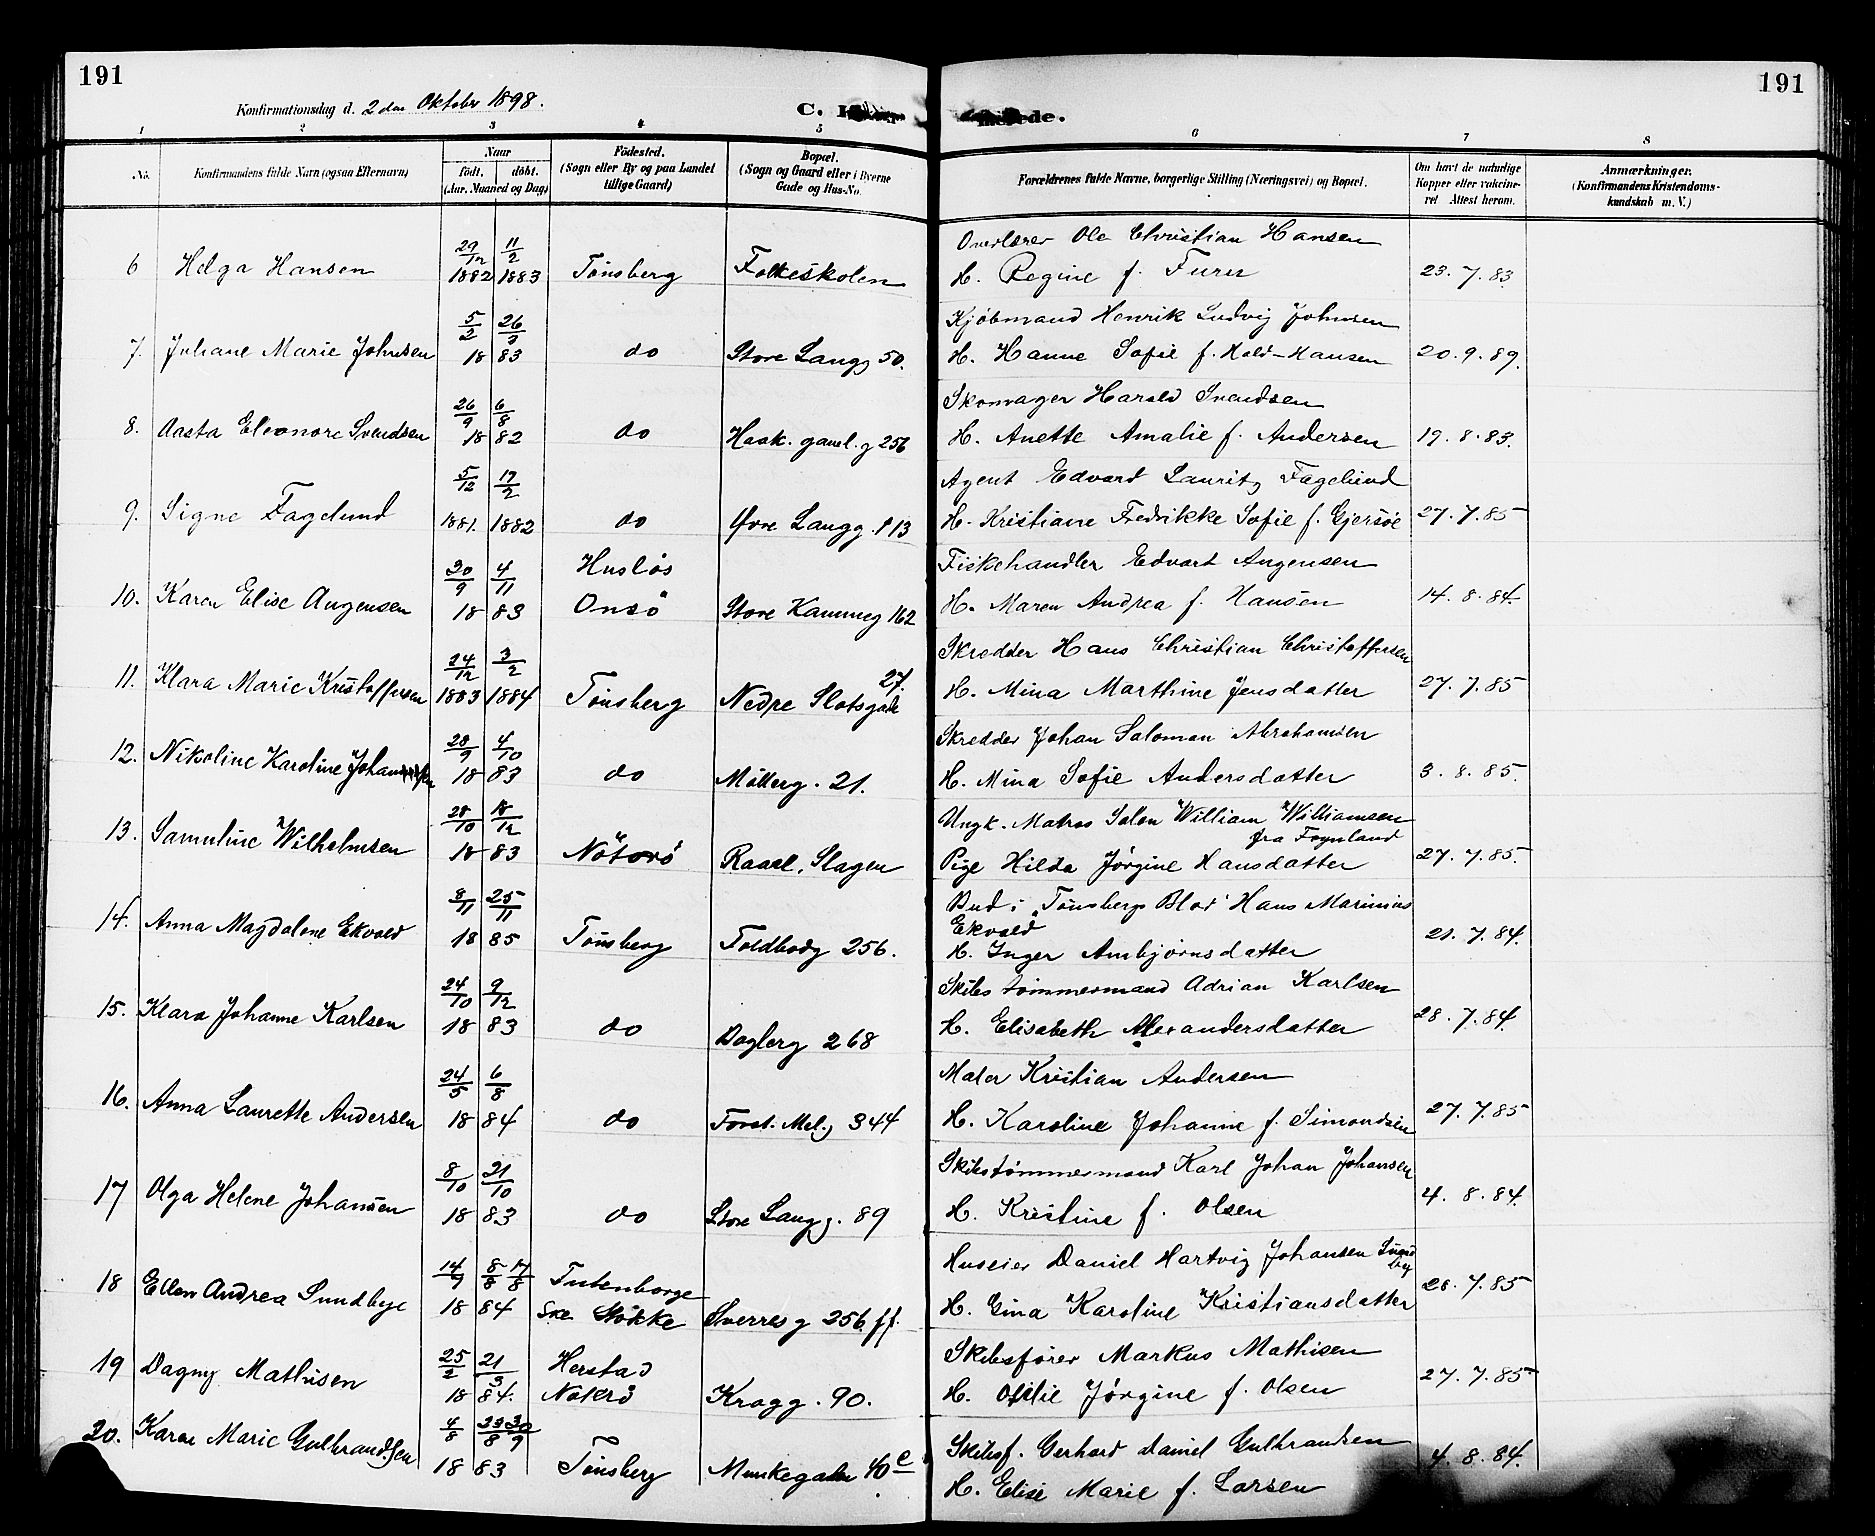 191
191
Konfirmationsdag d. 2den Oktober 1898.
C.
1 2 3 4 5 6 7 8
No.
Konfirmandens fulde Navn (ogsaa Efternavn)
Naar
födt. döbt.
(Aar, Maaned og Dag)
Födested.
(Sogn eller By og paa Landet
tillige Gaard)
Bopæl.
(Sogn og Gaard eller i Byerne
Gade og Hus-No.
Forældrenes fulde Navne, borgerlige Stilling (Næringsvei) og Bopæl.
Om havt de naturlige
Kopper eller vakcine-
ret Attest herom.
Anmærkninger.
(Konfirmandens Kristendoms-
kundskab m. V.)
6 Helga Hansen 29/12 1882 11/2 1883 Tönsberg Folkeskolen
Overlærer Ole Christian Hansen
H. Regine f. Furer 23.7.83.
7. Juliane Marie Johnsen 5/2 26/3 18 83 do Store Langg 50.
Kjöbmand Henrik Ludvig Johnsen
H. Hanne Sofie f. Hald-Hansen 20.9.89.
8. Aasta Eleonore Svendsen 26/9 6/8 18 82 do Haak. gaml. g 256
Skomager Harald Svendsen
H. Anette Amalie f. Andersen 19.8.83.
9. Signe Fagelund 5/12 1881. 17/2 1882 do Övre Langg. 113
Agent Edvard Lauritz Fagelund
H. Kristiane Fredrikke Sofie f. Gjersöe 27.7.85
10. Karen Elise Augensen 30/9 4/11 18 83 Huslös Onsö Store Kammeg 162
Fiskehandler Edvart Augensen
H. Maren Andrea f. Hansen 14.8.84.
11. Klara Marie Kristoffersen 24/12 1883 3/2 1884 Tönsberg Nedre Slotsgade 27.
Skredder Hans Christian Christoffersen
H. Mina Marthine Jensdatter 27.7.85
12. Nikoline Karoline 28/9 4/10 18 83 do Mölleg. 21.
Skredder Johan Saloman Abrahamsen
H. Mina Sofie Andersdatter 3.8.85.
13. Samuline Wilhelmsen 28/10 18/12 18 83 Nöterö Raael, Slagen
Ungk. Matros Salen William Williamsen
fra Foynland
Pige Hilda Jörgine Hansdatter 27.7.85.
14. Anna Magdalene Ekvold 8/11 25/11 18 85 Tönsberg Toldbodg 256.
Bud i "Tönsbergs Blad" Hans Marinius
Ekvold
H. Inger Ambjörnsdatter 21.7.84.
15. Klara Johanne Karlsen 24/10 9/12 18 83 do Baglerg 268
Skibstömmermand Adrian Karlsen
H. Elisabeth Alexandersdatter 28.7.84.
16. Anna Laurette Andersen 24/5 6/8 18 84 do Forst. Mel. g 344
Maler Kristian Andersen
H. Karoline Johanne f. Simondsen 27.7.85
17 Olga Helene Johansen 8/10 21/10 18 83 do Store Langg. 89
Skibstömmermand Karl Johan Johansen
H. Kristine f. Olsen 4.8.84.
18 Ellen Andrea Sundbye 14/9 8/8 17/8 18 84 Tutenborge Sve Stökke Sverresg 256. ff.
Huseier Daniel Hartvig Johansen
H. Gina Karoline Kristiansdatter 28.7.85
19 Dagny Mathisen 25/2 21/3 18 84. Herstad Nöterö Kragg. 90.
Skibsförer Markus Mathisen
H. Otilie Jörgine f. Olsen 27.7.85
20. Karen Marie Gulbrandsen 4/8 23/8 30/9 18 83 Tönsberg Munkegaden 40 c
Skibsf. Gerhard Daniel Gulbrandsen
H. Elise Marie f. Larsen 4.8.84.